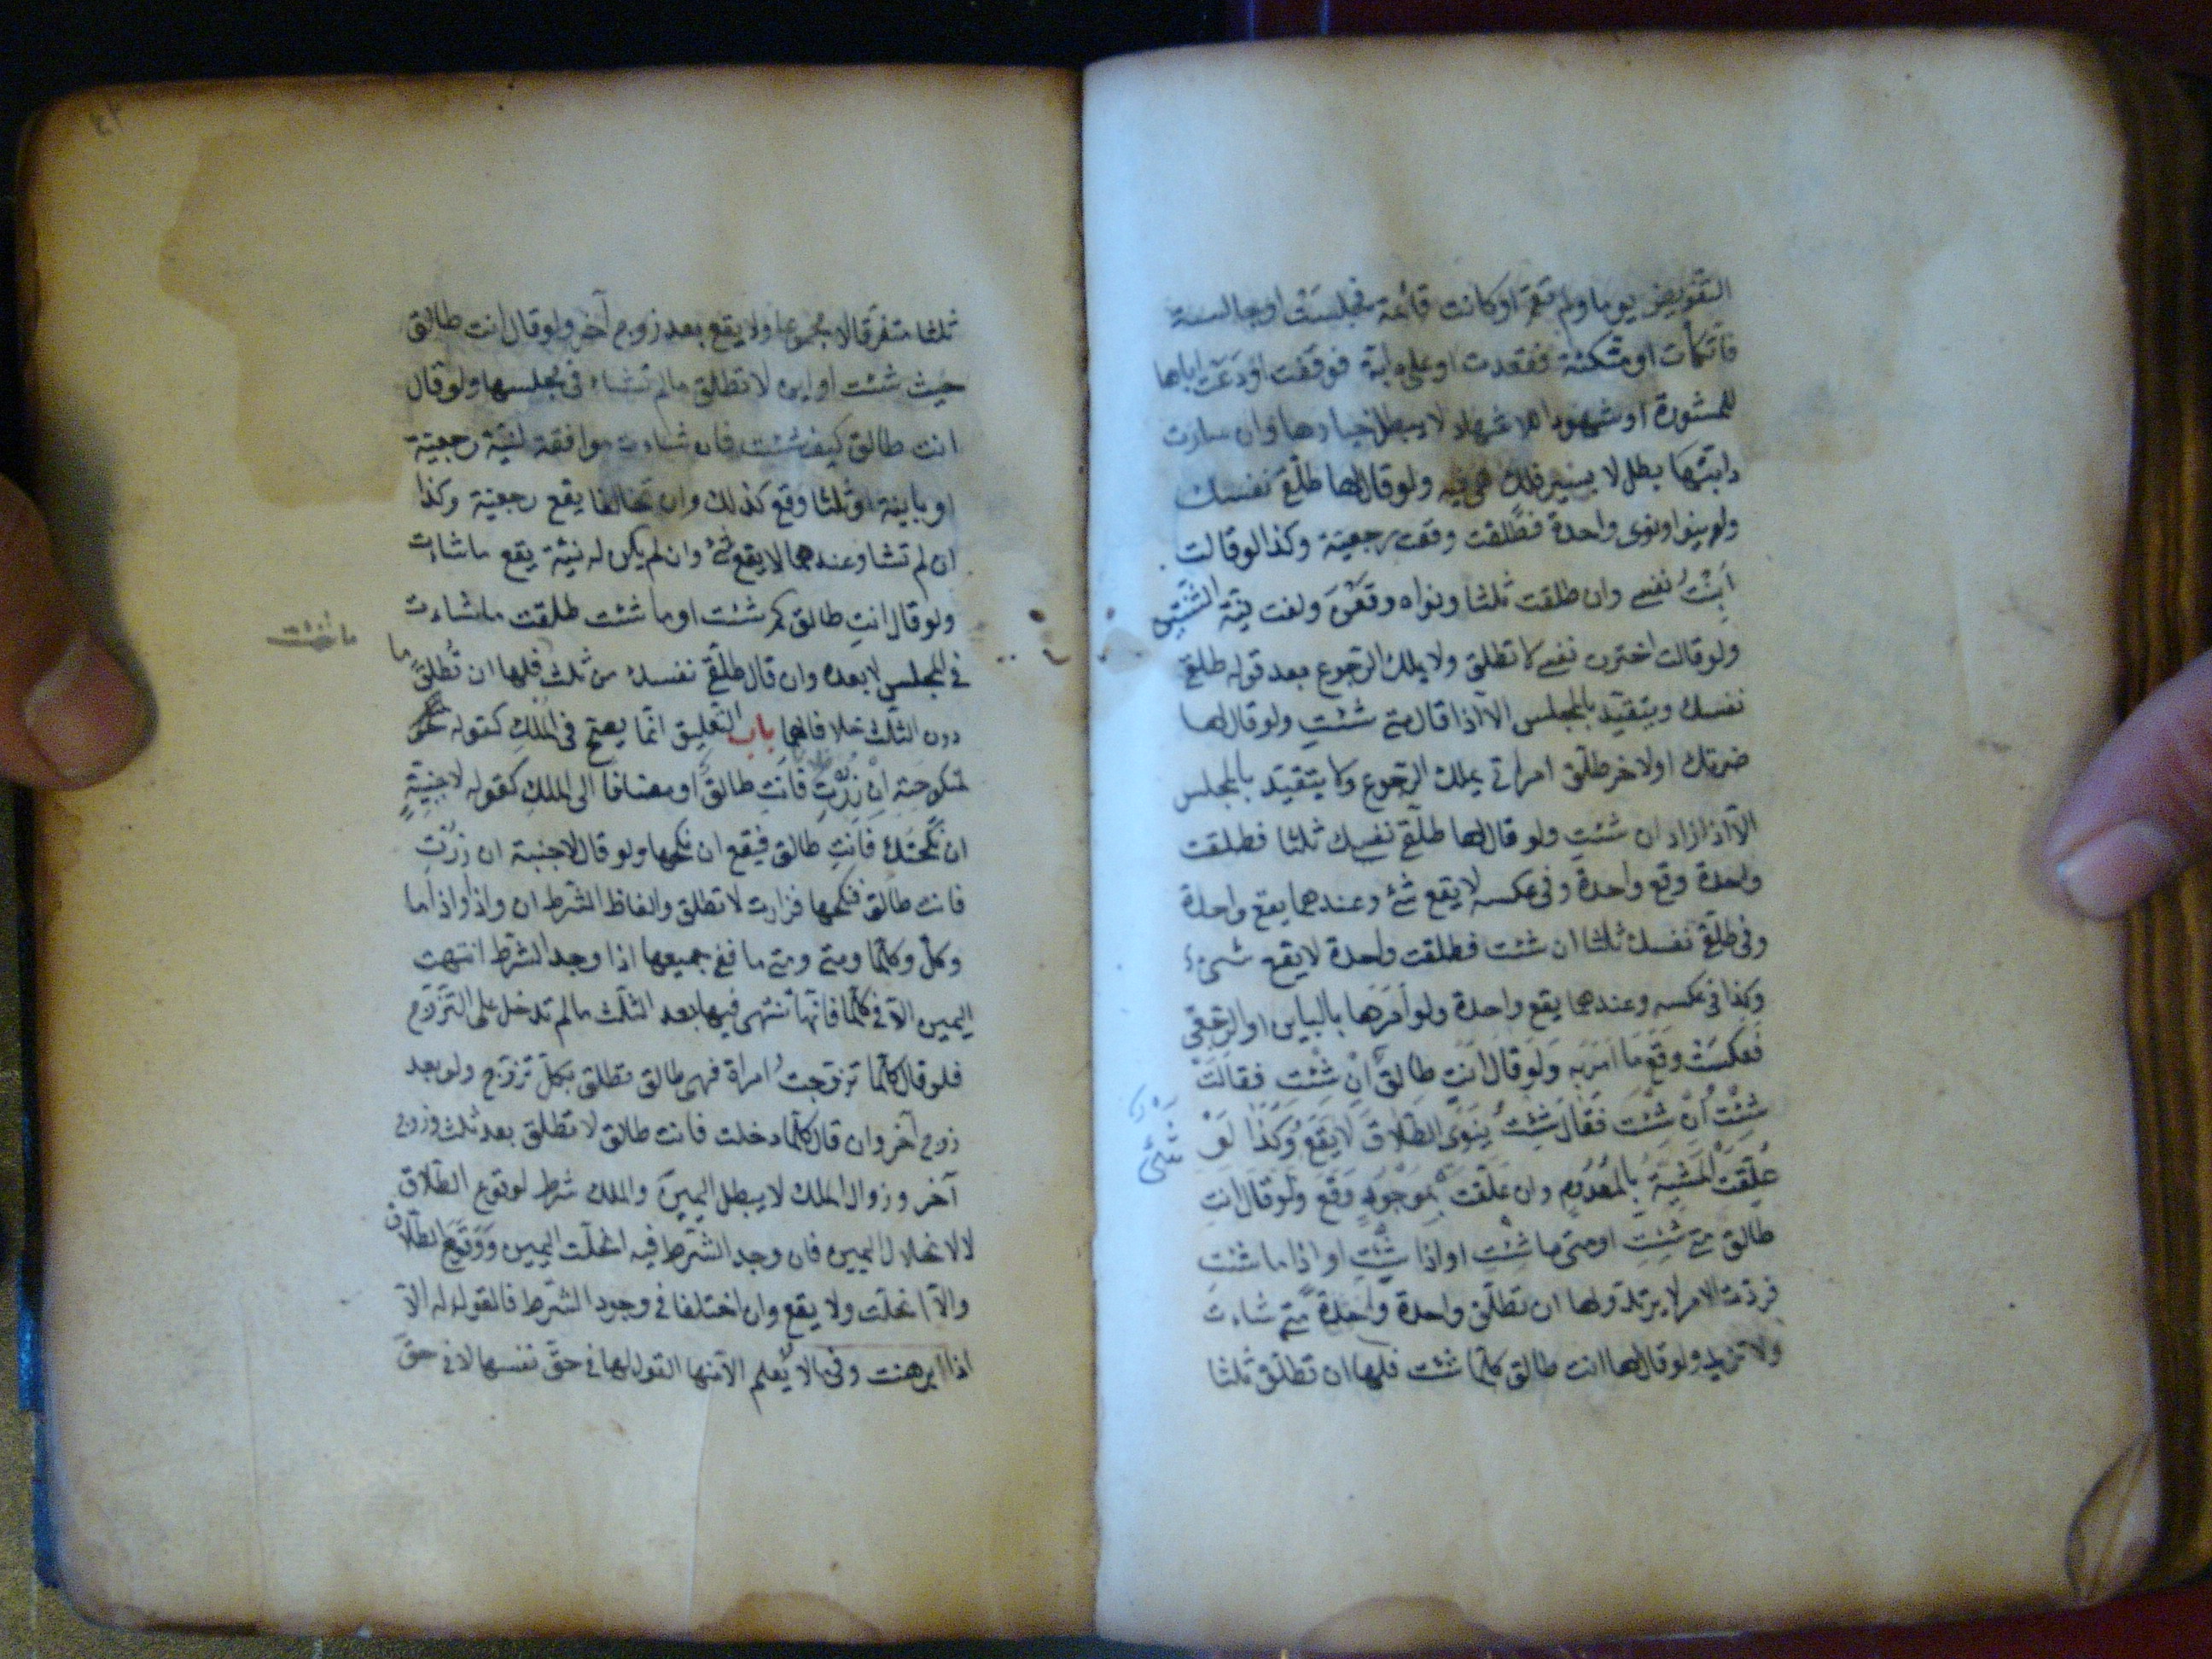 التفويض يوما ولم تقم او كانت قائمة فجلست او جالسة
فاتكأت او متكئة فقعدت او على دابة فوقفت او دعت اباها
للمشورة او شهودا للاشهاد لا يبطل خيارها وان سارت
دابتها بطل لا بسير فلك هى فيه ولو قال لها طلقى نفسك
ولم ينو او نوى واحدة فطلقت وقعت رجعية وكذا لو قالت
ابنت نفسى وان طلقت ثلثا ونواه وقعن ولغت نية الثنتين
ولو قالت اخترت نفسى لا تطلق ولا يملك الرجوع بعد قوله طلقى
نفسك ويتقيد بالمجلس الا اذا قال متى شئت ولو قال لها
ضرتك او لاخر طلق امراتى يملك الرجوع ولا يتقيد بالمجلس
الا اذا زاد ان شئت ولو قال لها طلقى نفسك ثلثا فطلقت
واحدة وقع واحدة وفى عكسه لا يقع شئ وعندهما يقع واحدة
وفى طلقى نفسك ثلثا ان شئت فطلقت واحدة لا يقع شىء
وكذا فى عكسه وعندهما يقع واحدة ولو امرها بالباين او الرجعى
فعكست وقع ما امر به ولو قال انت طالق ان شئت فقالت
شئت ان شئت فقال شئت ينوى الطلاق لا يقع وكذا لو
علقت المشية بالمعدوم وان علقت بموجود وقع ولو قال انت
طالق متى شئت او متى ما شئت او اذا شئت او اذا ما شئت
فردت الامر لا يرتد ولها ان تطلق واحدة واحدة متى شاءت
ولا تزيد ولو قال لها انت طالق كلما شئت فلها ان تطلق ثلثا
ثلثا متفرقا لا مجموعا ولا يقع بعد زوج آخر ولو قال انت طالق
حيث شئت او اين لا تطلق ما لم تشاء فى مجلسها ولو قال
انت طالق كيف شئت فان شاءت موافقة لنية رجعية
او باينة او ثلثا وقع كذلك وان تخالفا يقع رجعية وكذا
ان لم تشا وعندهما لا يقع شئ وان لم يكن له نية يقع ما شاءت
ولو قال انت طالق كم شئت او ما شئت طلقت ما شاءت
فى المجلس لا بعده وان قال طلقى نفسك من ثلث فلها ان تطلق ما
دون الثلث خلافا لهما باب التعليق انما يصح فى الملك كقوله
لمنكوحته ان زرت فانت طالق او مضافا الى الملك كقوله لاجنبية
ان نكحتك فانت طالق فيقع ان نكحها ولو قال لاجنبية ان زرت
فانت طالق فنكحها فزارت لا تطلق والفاظ الشرط ان واذا واذا ما
وكل وكلما ومتى ومتى ما ففى جميعها اذا وجد الشرط انتهت
اليمين الا فى كلما فانها تنتهى فيها بعد الثلث ما لم تدخل على التزوج
فلو قال كلما تزوجت امراة فهى طالق تطلق بكل تزوج ولو بعد
زوج آخر وان قال كلما دخلت فانت طالق لا تطلق بعد ثلث وزوج
آخر وزوال الملك لا يبطل اليمين والملك شرط لوقوع الطلاق
لا لانحلال اليمين فان وجد الشرط فيه انحلت اليمين ووقع الطلاق
والا انحلت ولا يقع وان اختلفا فى وجود الشرط فالقول له الا
اذا برهنت وفى ما لا يعلم الا منها القول لها فى حق نفسها لا فى حق